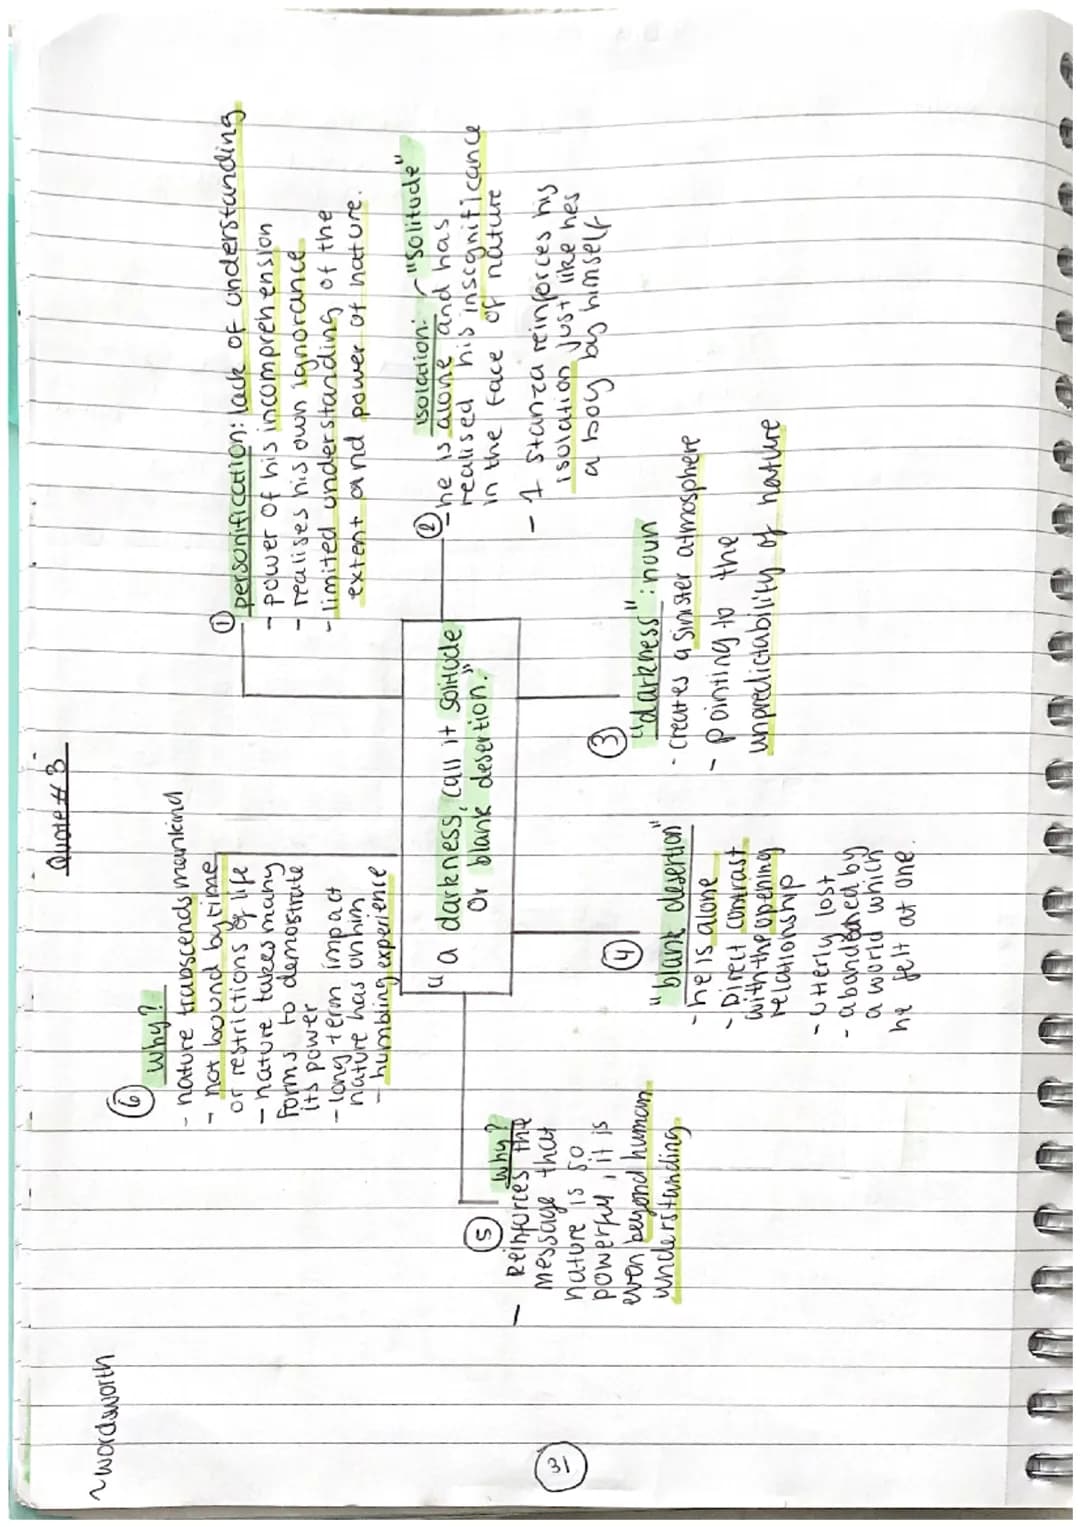 ~wordsworth
Quote #3
① personification: lack of understanding
- power of his incomprehension
- realises his own ignorance
- limited understanding of the
extent and power of nature.
② isolation: - "solitude"
- he is alone and has
realised his insignificance
in the face of nature
- 1 stanza reinforces his
isolation just like hes
a boy by himself
"a darkness, call it solitude
Or blank desertion."
③ "darkness": noun
- creates a sinister atmosphere
- pointing to the
unpredictability of nature
④ "blank desertion"
- he is alone
- Direct contrast
with the opening
relationship
- utterly lost
- abandoned by
a world which
he felt at one.
⑤ why?
- Reinforces the
message that
nature is so
powerful, it is
even beyond human
understanding
⑥ why?
- nature transcends mankind
- not bound by time
or restrictions of life
- nature takes many
forms to demostrate
its power
- long term impact
nature has on him
- humbling experience
31